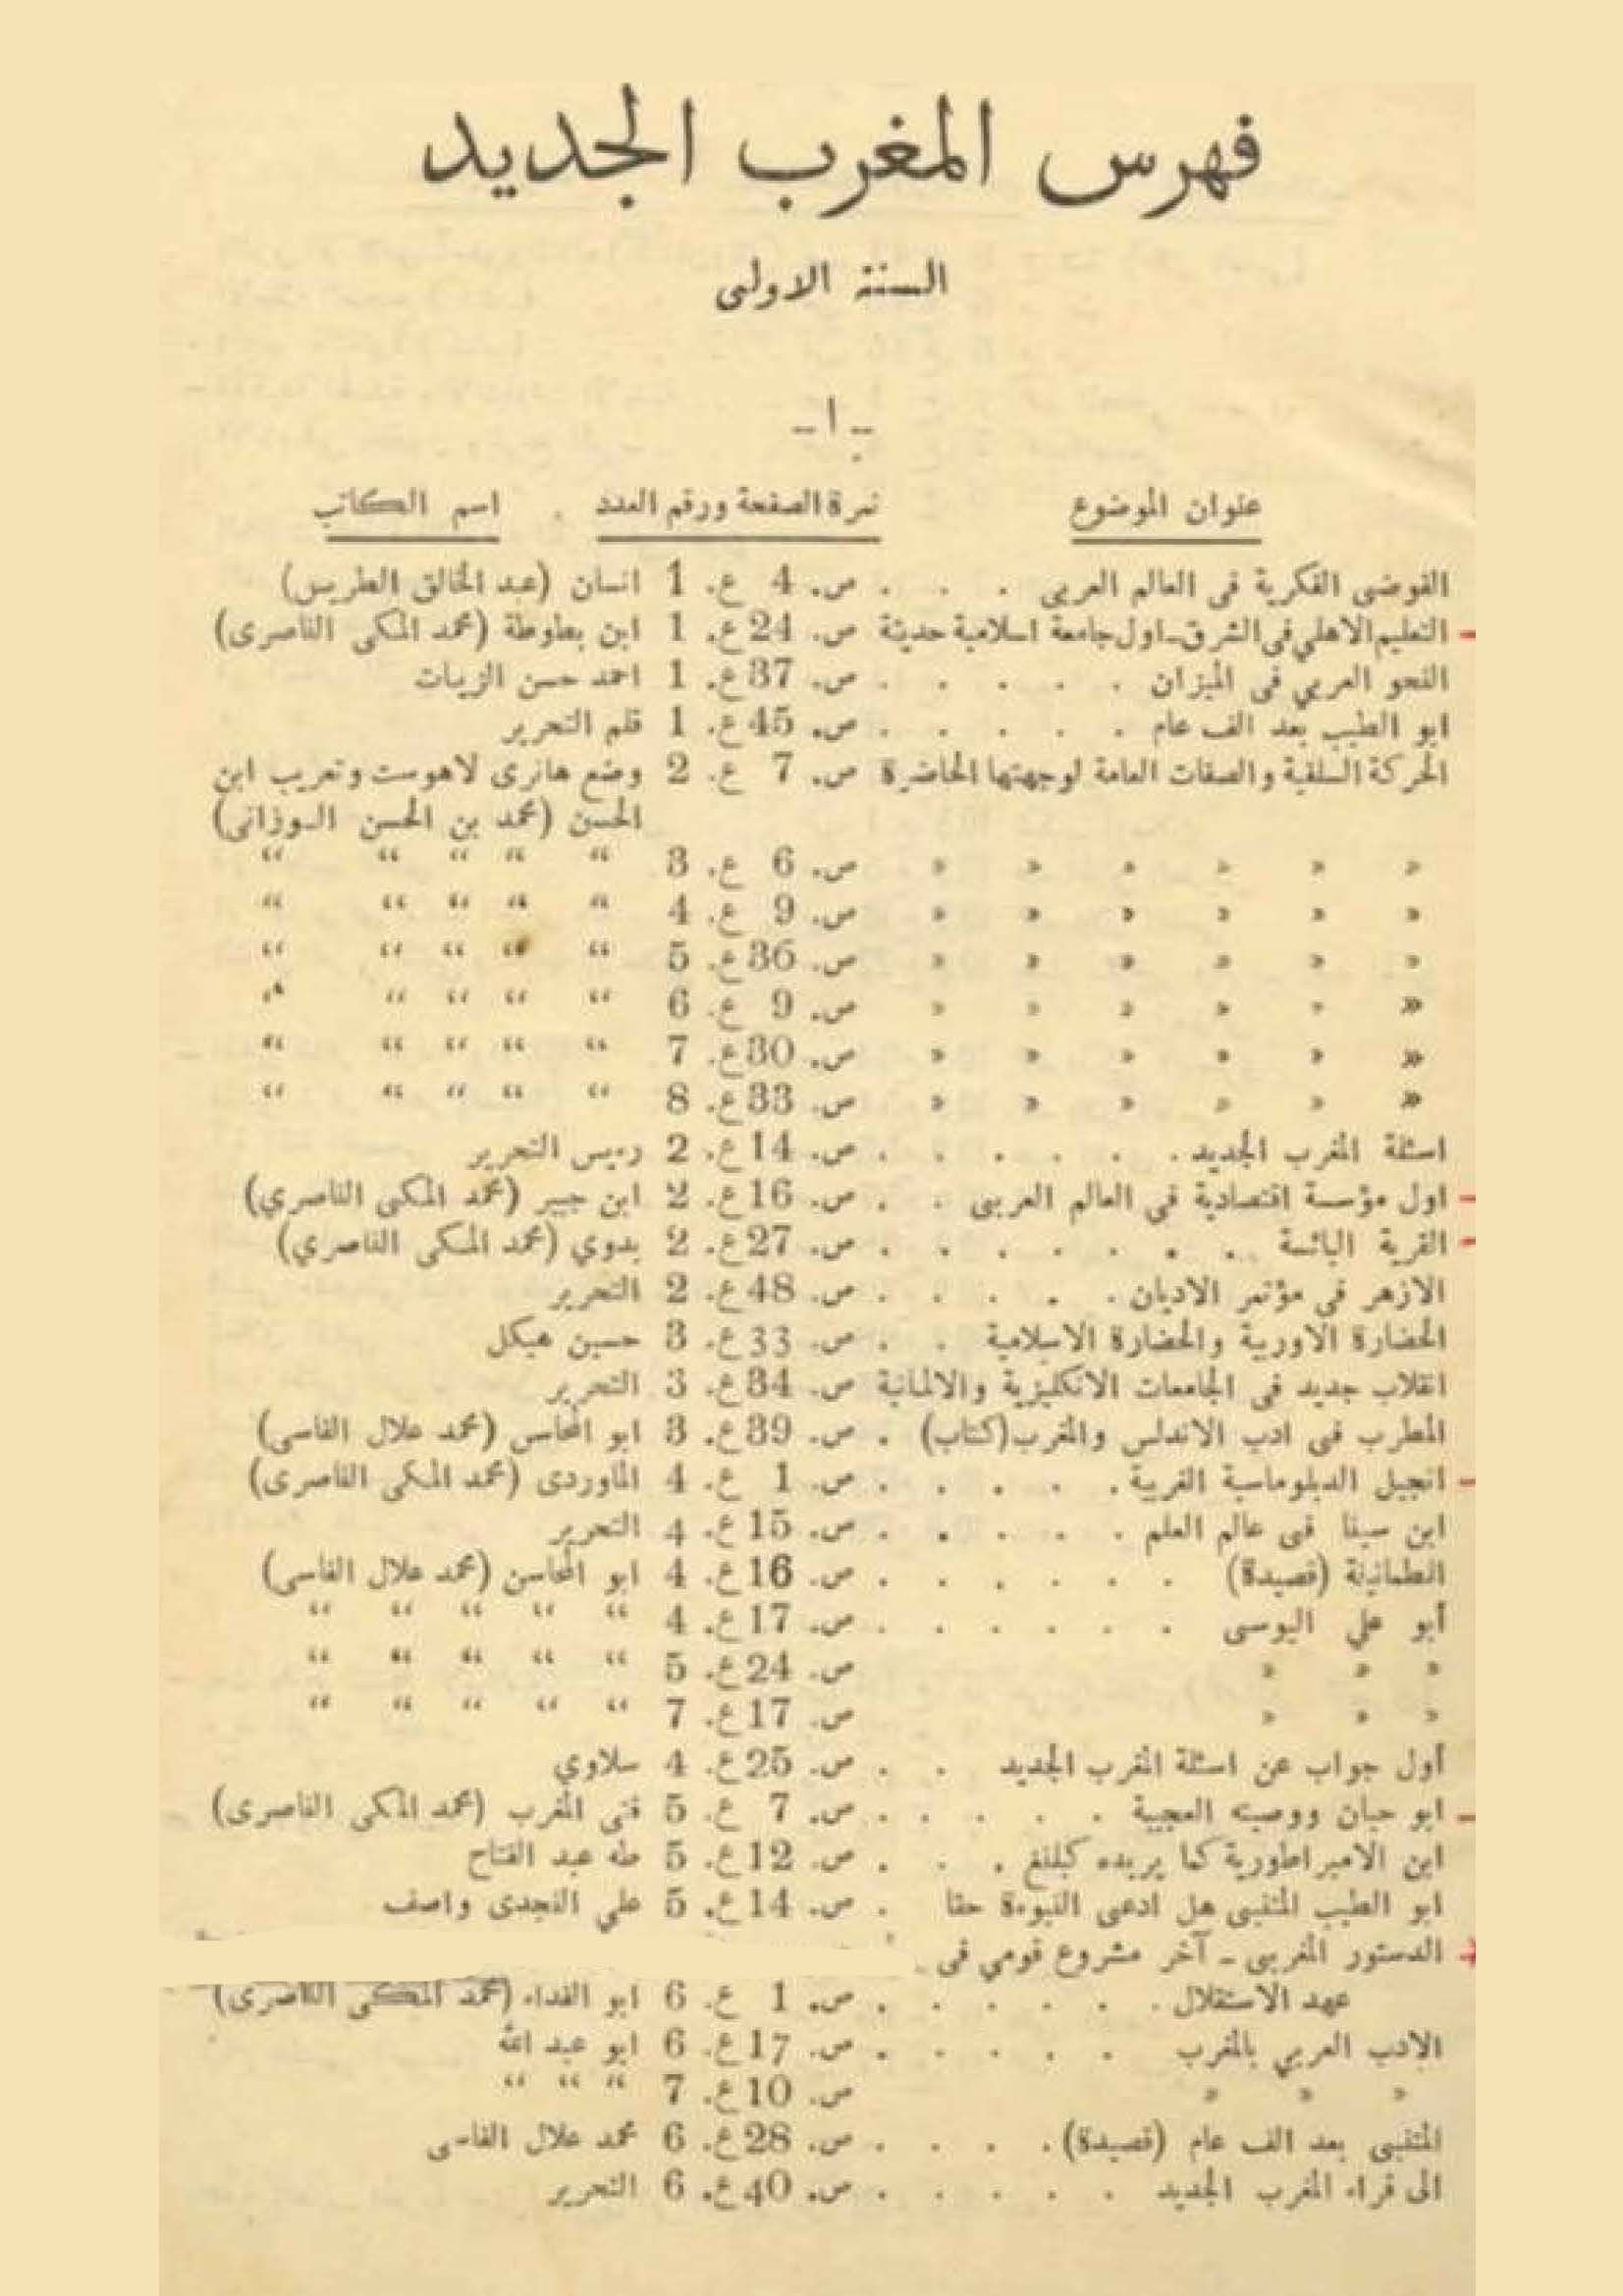 فهرس المغرب الجديد
السنة الاولى
- ١ -
عنوان الموضوع نمرة الصفحة ورقم العدد . اسم الكاتب
الفوضى الفكرية فى العالم العربى . . . ص. 4 ع. 1 انسان (عبد الخالق الطريس)
التعليم الاهلي فى الشرق ـ اول جامعة اسلامية حديثة ص. 24 ع. 1 ابن بطوطة (محمد المكى الناصرى)
النحو العربي فى الميزان . . . . . ص. 37 ع. 1 احمد حسن الزيات
ابو الطيب بعد الف عام . . . . . ص. 45 ع. 1 قلم التحرير
الحركة السلفية والصفات العامة لوجهتها الحاضرة ص. 7 ع. 2 وضع هانرى لاهوست وتعريب ابن
الحسن (محمد بن الحسن الـوزانى)
» » » » » » ص. 6 ع. 3 “ “ “ “ “
» » » » » » ص. 9 ع. 4 “ “ “ “ “
» » » » » » ص. 36 ع. 5 “ “ “ “ “
» » » » » » ص. 9 ع. 6 “ “ “ “ “
» » » » » » ص. 30 ع. 7 “ “ “ “ “
» » » » » » ص. 33 ع. 8 “ “ “ “ “
اسئلة المغرب الجديد . . . . . . ص. 14 ع. 2 رءيس التحرير
اول مؤسسة اقتصادية في العالم العربى . . ص. 16 ع. 2 ابن جبير (محمد المكى الناصري)
القرية البائسة . . . . . . . ص. 27 ع. 2 بدوي (محمد المكى الناصري)
الازهر في مؤتمر الاديان . . . . . ص. 48 ع. 2 التحرير
الحضارة الاوربية والحضارة الاسلامية . . ص. 33 ع. 3 حسين هيكل
انقلاب جديد فى الجامعات الانكليزية والالمانية ص. 34 ع. 3 التحرير
المطرب فى ادب الاندلس والمغرب (كتاب) . ص. 39 ع. 3 ابو المحاسن (محمد علال الفاسى)
انجيل الدبلوماسية الغربية . . . . . ص. 1 ع. 4 الماوردى (محمد المكى الناصرى)
ابن سينا فى عالم العلم . . . . . ص. 15 ع. 4 التحرير
الطمانينة (قصيدة) . . . . . . ص. 16 ع. 4 ابو المحاسن (محمد علال الفاسى)
أبو علي اليوسى . . . . . . ص. 17 ع. 4 “ “ “ “ “
» » » ص. 24 ع. 5 “ “ “ “ “
» » » ص. 17 ع. 7 “ “ “ “ “
أول جواب عن اسئلة المغرب الجديد . . ص. 25 ع. 4 سلاوي
ابو حيان ووصيته العجيبة . . . . . ص. 7 ع. 5 فتى المغرب (محمد المكى الناصرى)
ابن الامبراطورية كما يريده كبلنغ . . . ص. 12 ع. 5 طه عبد الفتاح
ابو الطيب المتنبى هل ادعى النبوءة حقا . ص. 14 ع. 5 علي النجدى واصف
الدستور المغربى ـ آخر مشروع قومي فى
عهد الاستقلال . . . . . . ص. 1 ع. 6 ابو الفداء (محمد المكى الناصرى)
الادب العربي بالمغرب . . . . . ص. 17 ع. 6 ابو عبد الله
» » » ص. 10 ع. 7 “ “ “
المتنبى بعد الف عام (قصيدة) . . . . ص. 28 ع. 6 محمد علال الفاسى
الى قراء المغرب الجديد . . . . . ص. 40 ع. 6 التحرير